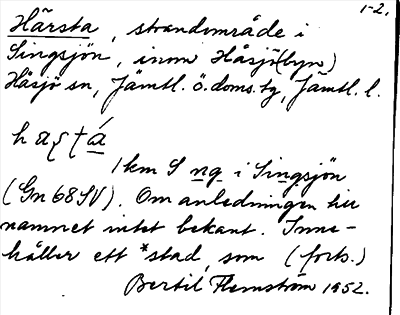 1-2.
Härsta, strandområde i
Singsjön, inom Håsjö (byn)
Håsjö sn, Jämtl. ö. doms. tg, Jämtl. l.
1 km S ng i Singsjön
(Gn 68 SV). Om anledningen till
namnet intet bekant. Inne-
håller ett *stad, som (forts.)
Bertil Flemström 1952.